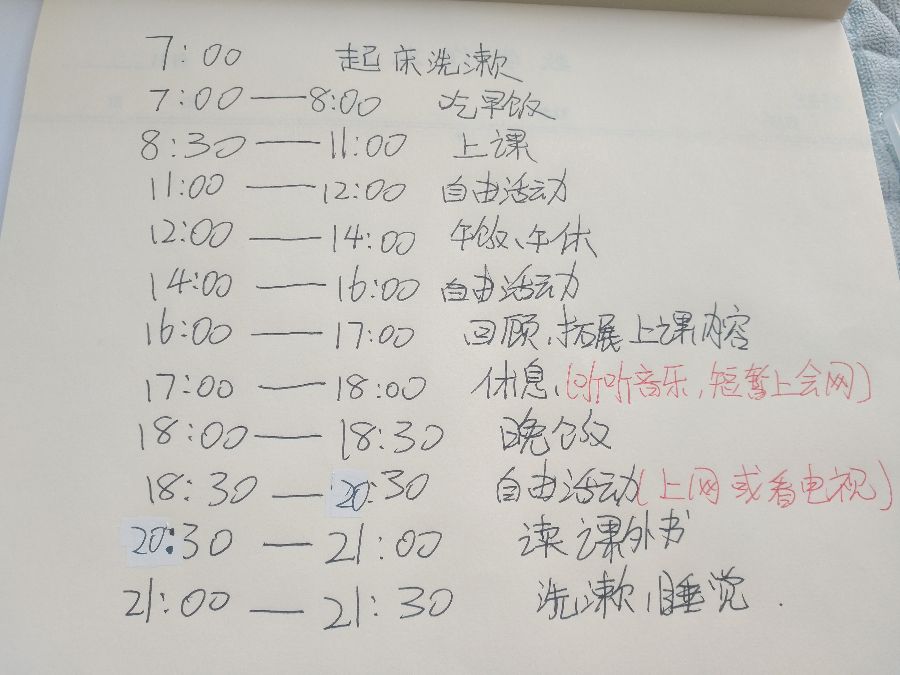 7:00 起床洗漱
7:00——8:00 吃早饭
8:30——11:00 上课
11:00——12:00 自由活动
12:00——14:00 午饭、午休
14:00——16:00 自由活动
16:00——17:00 回顾、拓展上课内容
17:00——18:00 休息、(听听音乐,短暂上会网)
18:00——18:30 晚饭
18:30——20:30 自由活动(上网或看电视)
20:30——21:00 读课外书
21:00——21:30 洗漱、睡觉.